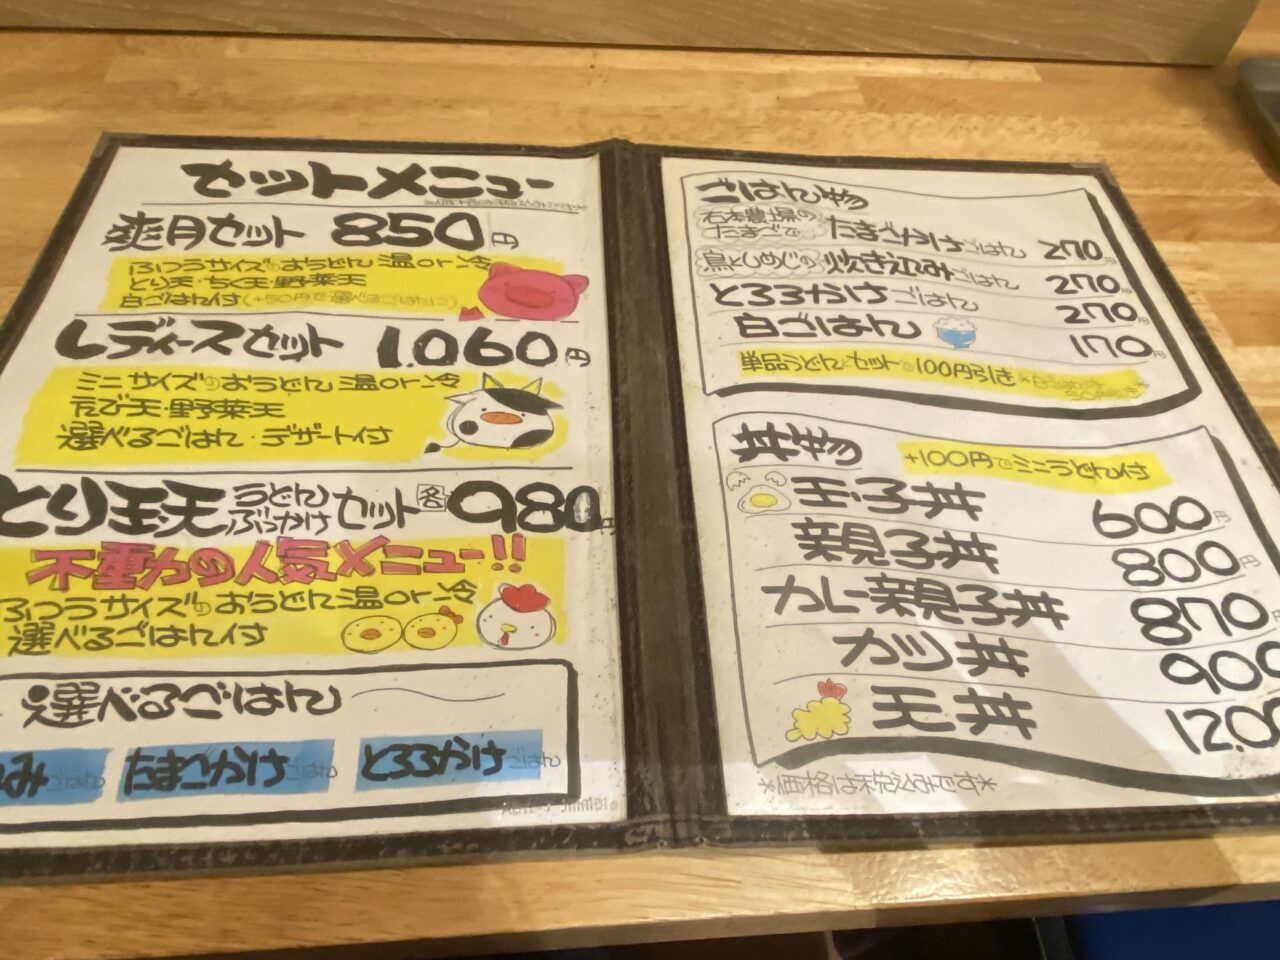 セットメニュー
爽月セット 850円
ふつうサイズのおうどん 温or冷
とり天・ちく天・野菜天
白ごはん付
レディースセット 1.060円
ミニサイズのおうどん 温or冷
えび天・野菜天
選べるごはん・デザート付
とり玉天 うどん ぶっかけ セット 各 980円
不動の人気メニュー!!
ふつうサイズのおうどん 温or冷
選べるごはん付
選べるごはん
たまごかけ
とろろかけ
ごはん物
たまごかけごはん 270円
鳥としめじの炊き込みごはん 270円
とろろかけごはん 270円
白ごはん 170円
単品うどんとセットで100円引き
丼物
+100円でミニうどん付
玉子丼 600円
親子丼 800円
カレー親子丼 870
カツ丼 900
天丼
*価格は税込みです*